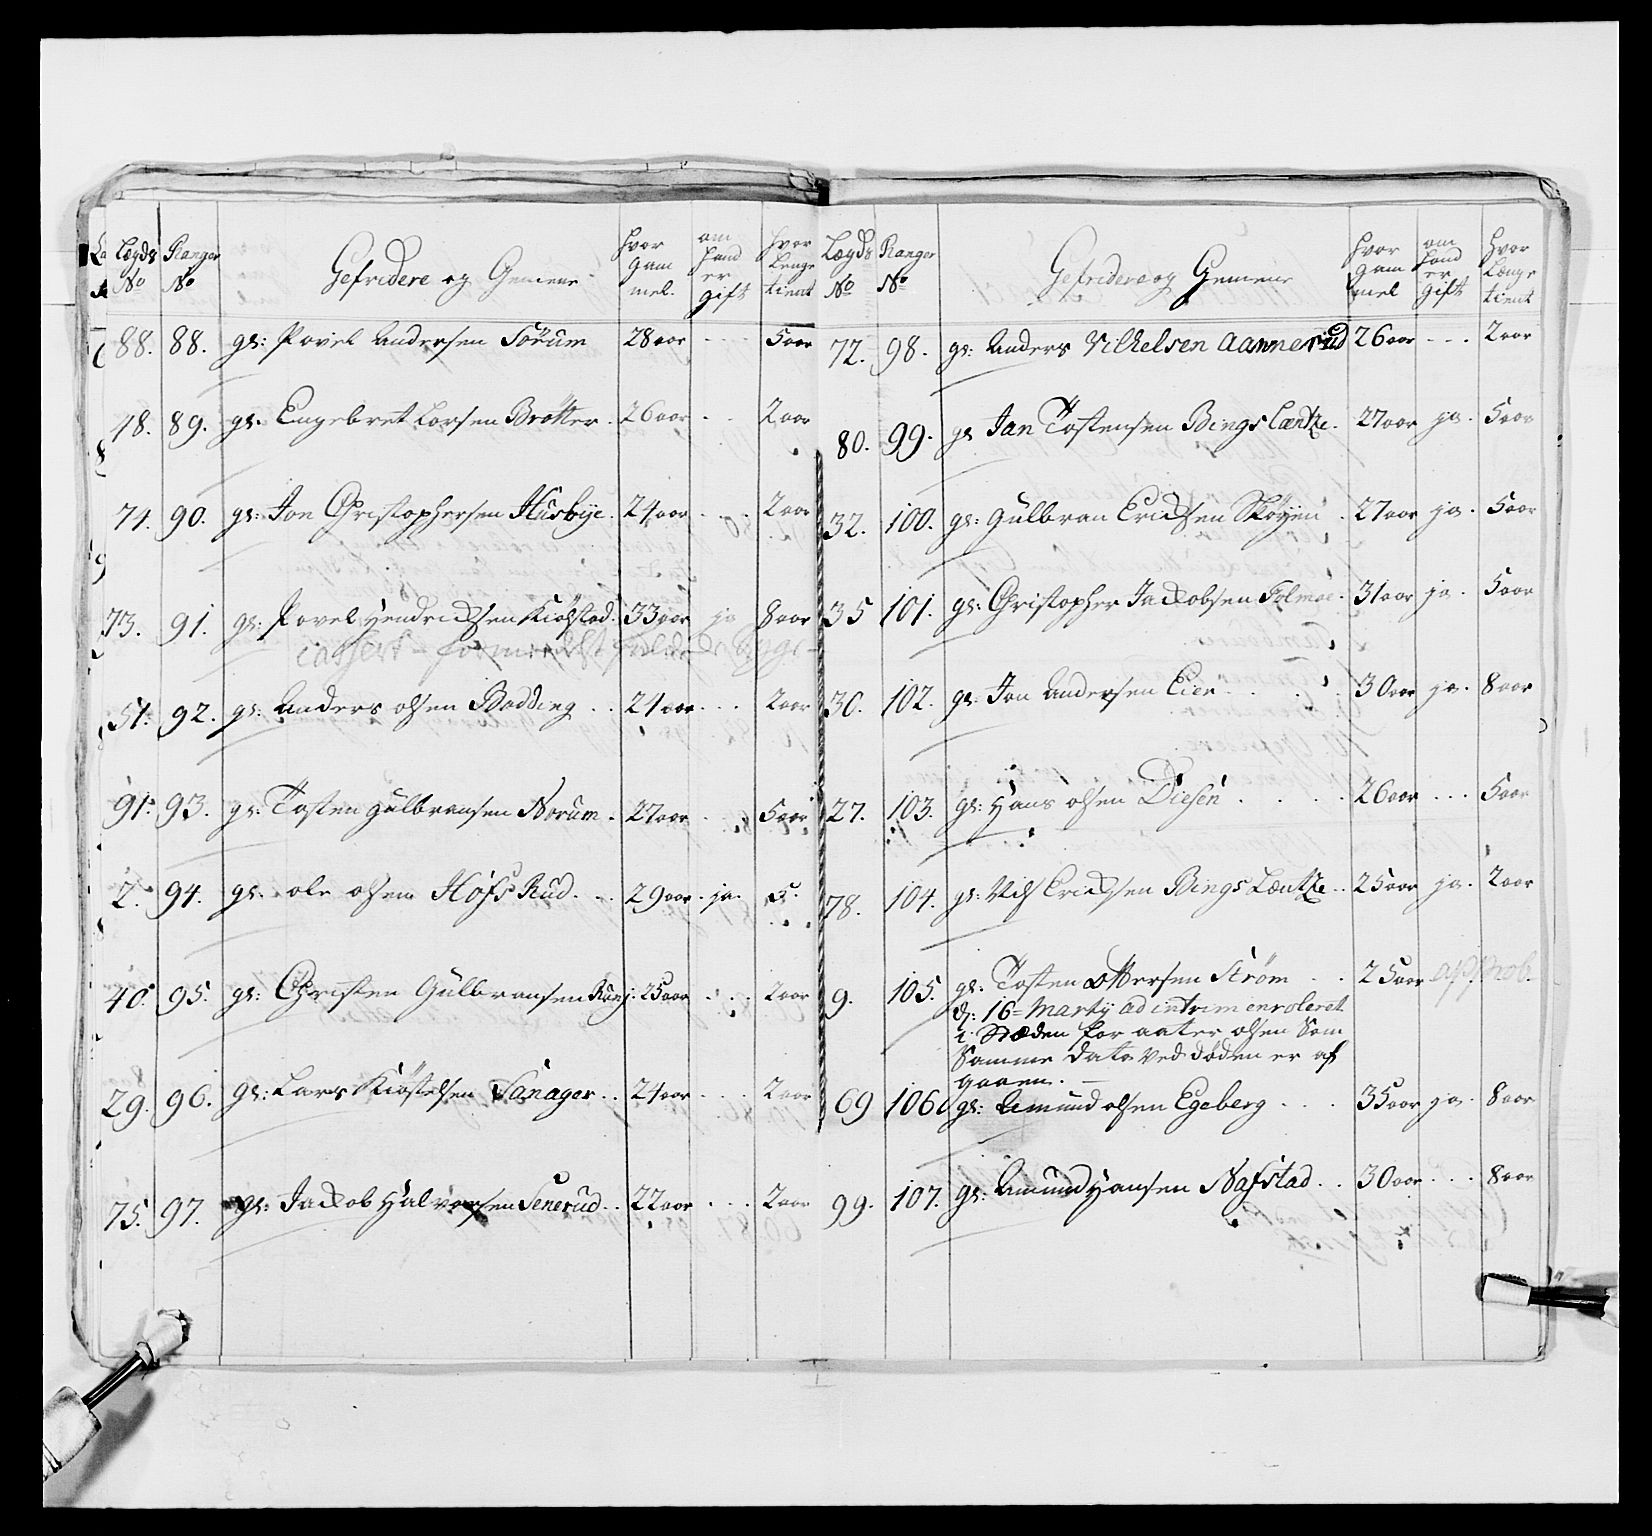 Lægds No Ranger No Gefridere og Gemene hvor gam mel. om hand er gift hvor lenge tient
88. 88. gs: Povel Andersen Sörum 28 aar - - - 5 aar
48. 89. gs: Engebret Larsen Brötter. 26 aar - - 2 aar
74. 90. gs: Jon Christophersen Husbije. 24 aar - - - 2 aar
73. 91. gs: Povel Hendrichsen Kiölstad. 33 aar ja 8 aar
Cassert formedelst
51. 92. gs: Anders olsen Bodding . . 24 aar - - - 2 aar
91. 93. gs: Tosten gulbransen Norum . 27 aar . . 5 aar
2. 94. gs: ole olsen Höfs Rud. . . 29 aar. ja. 5.
40. 95. gs: Christen Gulbransen Rung. 25 aar . . . 2 aar
29. 96. gs: Lars Kiöstelsen Sanager. . 24 aar . . . 2 aar
75. 97. gs: Jackob Halvorsen Senerud. . 22 aar . . . 2 aar
Lægds No Ranger No Gefridere og Gemene hvor gam mel om hand er gift hvor Længe tient
72. 98. gs: Anders Vilhelsen Aannerud 26 aar - - . 2 aar
80. 99. gs Jan Tostensen Bings Læntze. 27 aar ja . 5 aar
32. 100. gs: Gulbran Erichsen Skøyen . 27 aar ja . 5 aar
35 101. gs: Christopher Jackobsen Folmoe. 31 aar ja . 5 aar
30. 102. gs: Jon Andersen Eien . . . . 30 aar ja . 8 aar
27. 103. gs: Hans olsen Diesen . . . . 26 aar . . . 5 aar
78. 104. gs: Nils Erichsen Bings Læntze . . 25 aar ja . 2 aar
9. 105. gs: Tosten ottersen Strøm . . 25 aar
d: 16= Martij ad intrim enroleret
i Stæden for aater olsen Som
Samme Dato ved døden er af
gaaen. —
69 106. gs: Amund olsen Egeberg . . . 35 aar ja . 8 aar
99. 107. gs: Amund Hansen Nafstad . . 30 aar . . . 8 aar